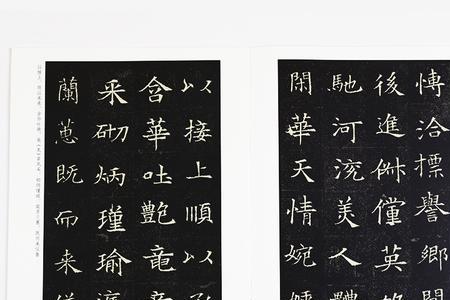 博洽標譽鄉
後進俶儻英
馳河渷美人
閑華天情婉
以接上順以
含華吐艷竜
采砌炳瑾瑜
蘭蕙既而來